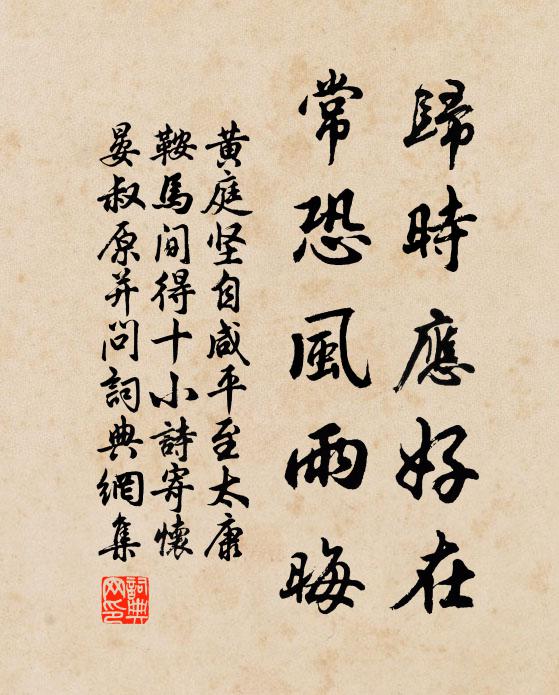 歸時應好在
常恐風雨晦
黃庭坚自咸平至太康
鞍馬间得十小詩寄懷
晏叔原并问詞典網集
詞典网印